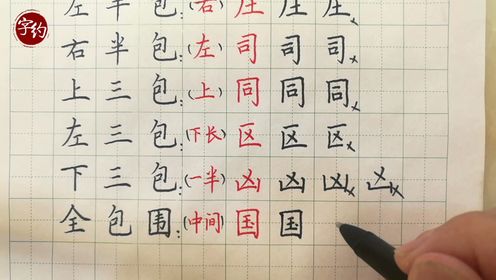 字约
左半包:(右)庄庄庄
右半包:(左)司司司
上三包:(上)同同同
左三包:(下长)区区区
下三包:(一半)凶凶凶凶
全包围:(中间)国国